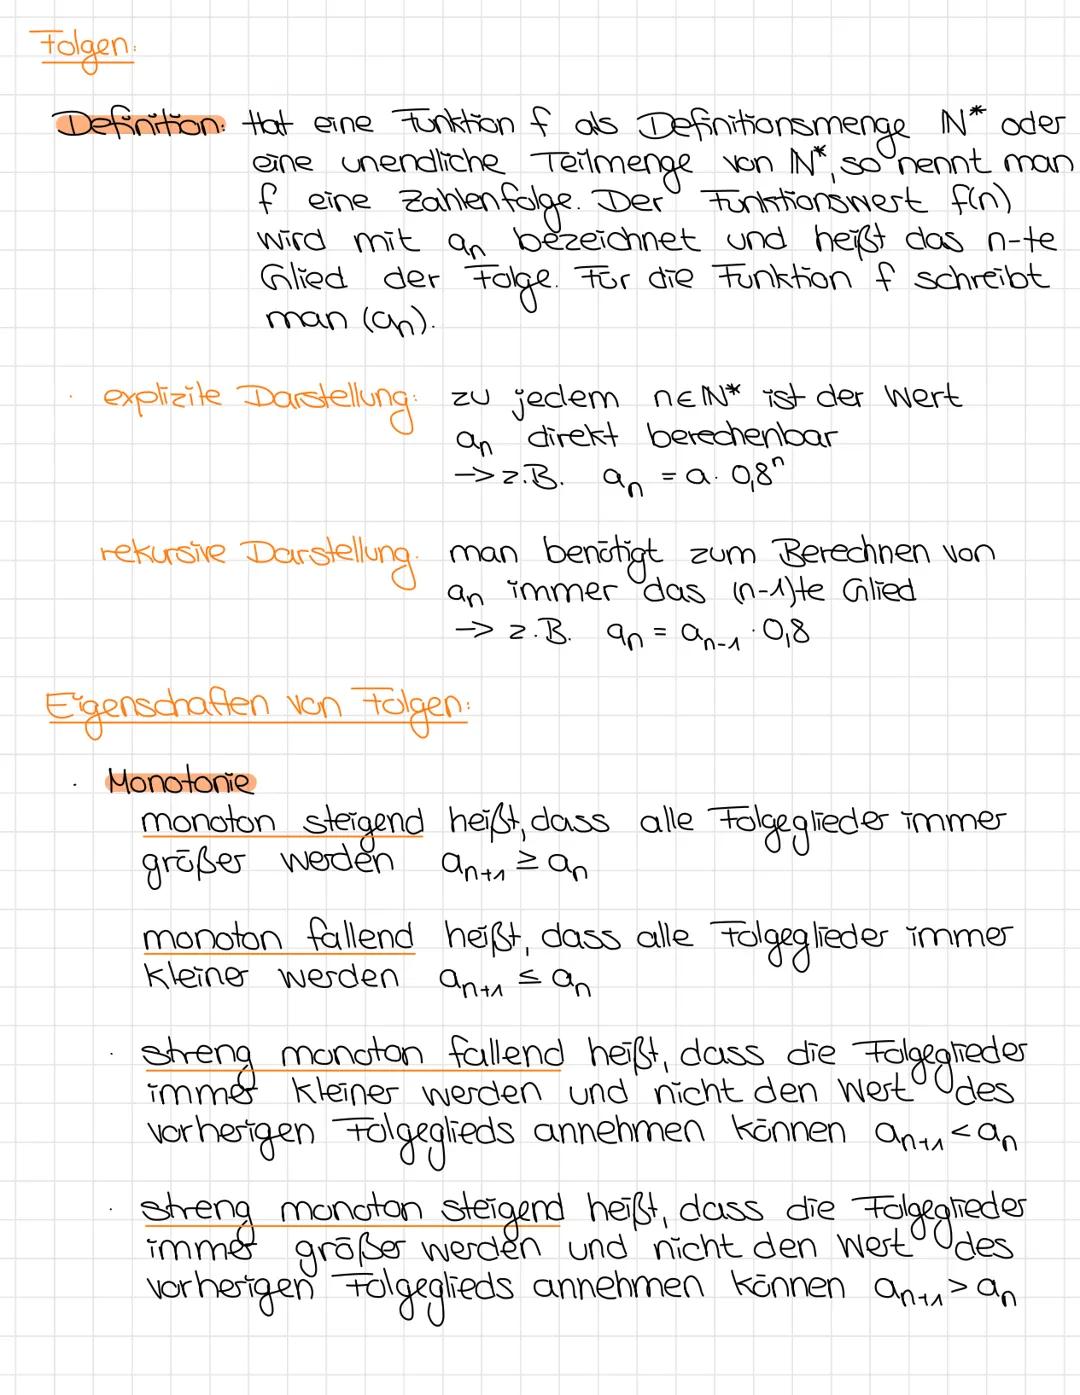 Folgen:
Definition: Hat eine Funktion f als Definitionsmenge ℕ* oder
eine unendliche Teilmenge von ℕ*, so nennt man
f eine Zahlenfolge. Der Funktionswert f(n)
wird mit aₙ bezeichnet und heißt das n-te
Glied der Folge. Für die Funktion f schreibt
man (aₙ).
· explizite Darstellung: zu jedem n∈ℕ* ist der Wert
aₙ direkt berechenbar
-> z.B. aₙ = a · 0,8ⁿ
rekursive Darstellung: man benötigt zum Berechnen von
aₙ immer das (n-1)te Glied
-> z.B. aₙ = aₙ₋₁ · 0,8
Eigenschaften von Folgen:
· Monotonie
monoton steigend heißt, dass alle Folgeglieder immer
größer werden aₙ₊₁ ≥ aₙ
monoton fallend heißt, dass alle Folgeglieder immer
kleiner werden aₙ₊₁ ≤ aₙ
· streng monoton fallend heißt, dass die Folgeglieder
immer kleiner werden und nicht den Wert des
vorherigen Folgeglieds annehmen können aₙ₊₁ < aₙ
· streng monoton steigend heißt, dass die Folgeglieder
immer größer werden und nicht den Wert des
vorherigen Folgeglieds annehmen können aₙ₊₁ > aₙ